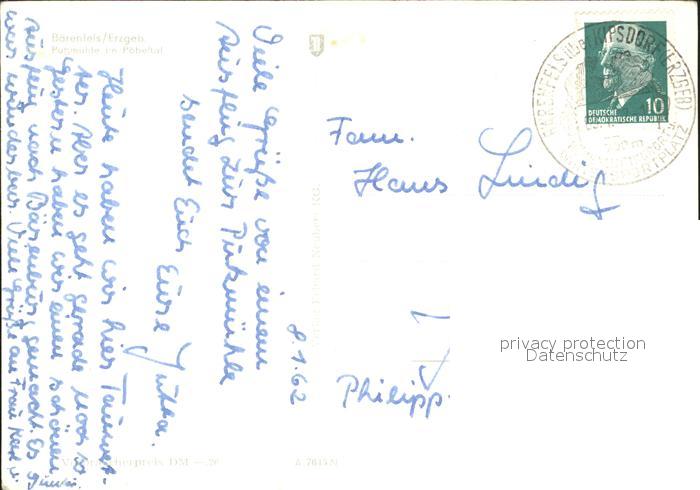 Bärenfels/Erzgeb.
Putzmühle im Pöbeltal
Viele Grüße von einem
Ausflug zur Putzmühle
sendet Euch Eure Jutta.
8.1.62
Heute haben wir hier Tauwet-
ter. Aber es geht gerade noch so
Gestern haben wir einen schönen
Ausflug nach Bärenburg gemacht. Es
war wunderbar. Viele Grüße an Frau
Fam.
Hans Lindig
Philipp
BÄRENFELS über KIPSDORF (ERZGEB)
750 m
SPORTPLATZ
DEUTSCHE
DEMOKRATISCHE REPUBLIK
10
Verbraucherpreis DM —.20
A 7615 N
privacy protection
Datenschutz